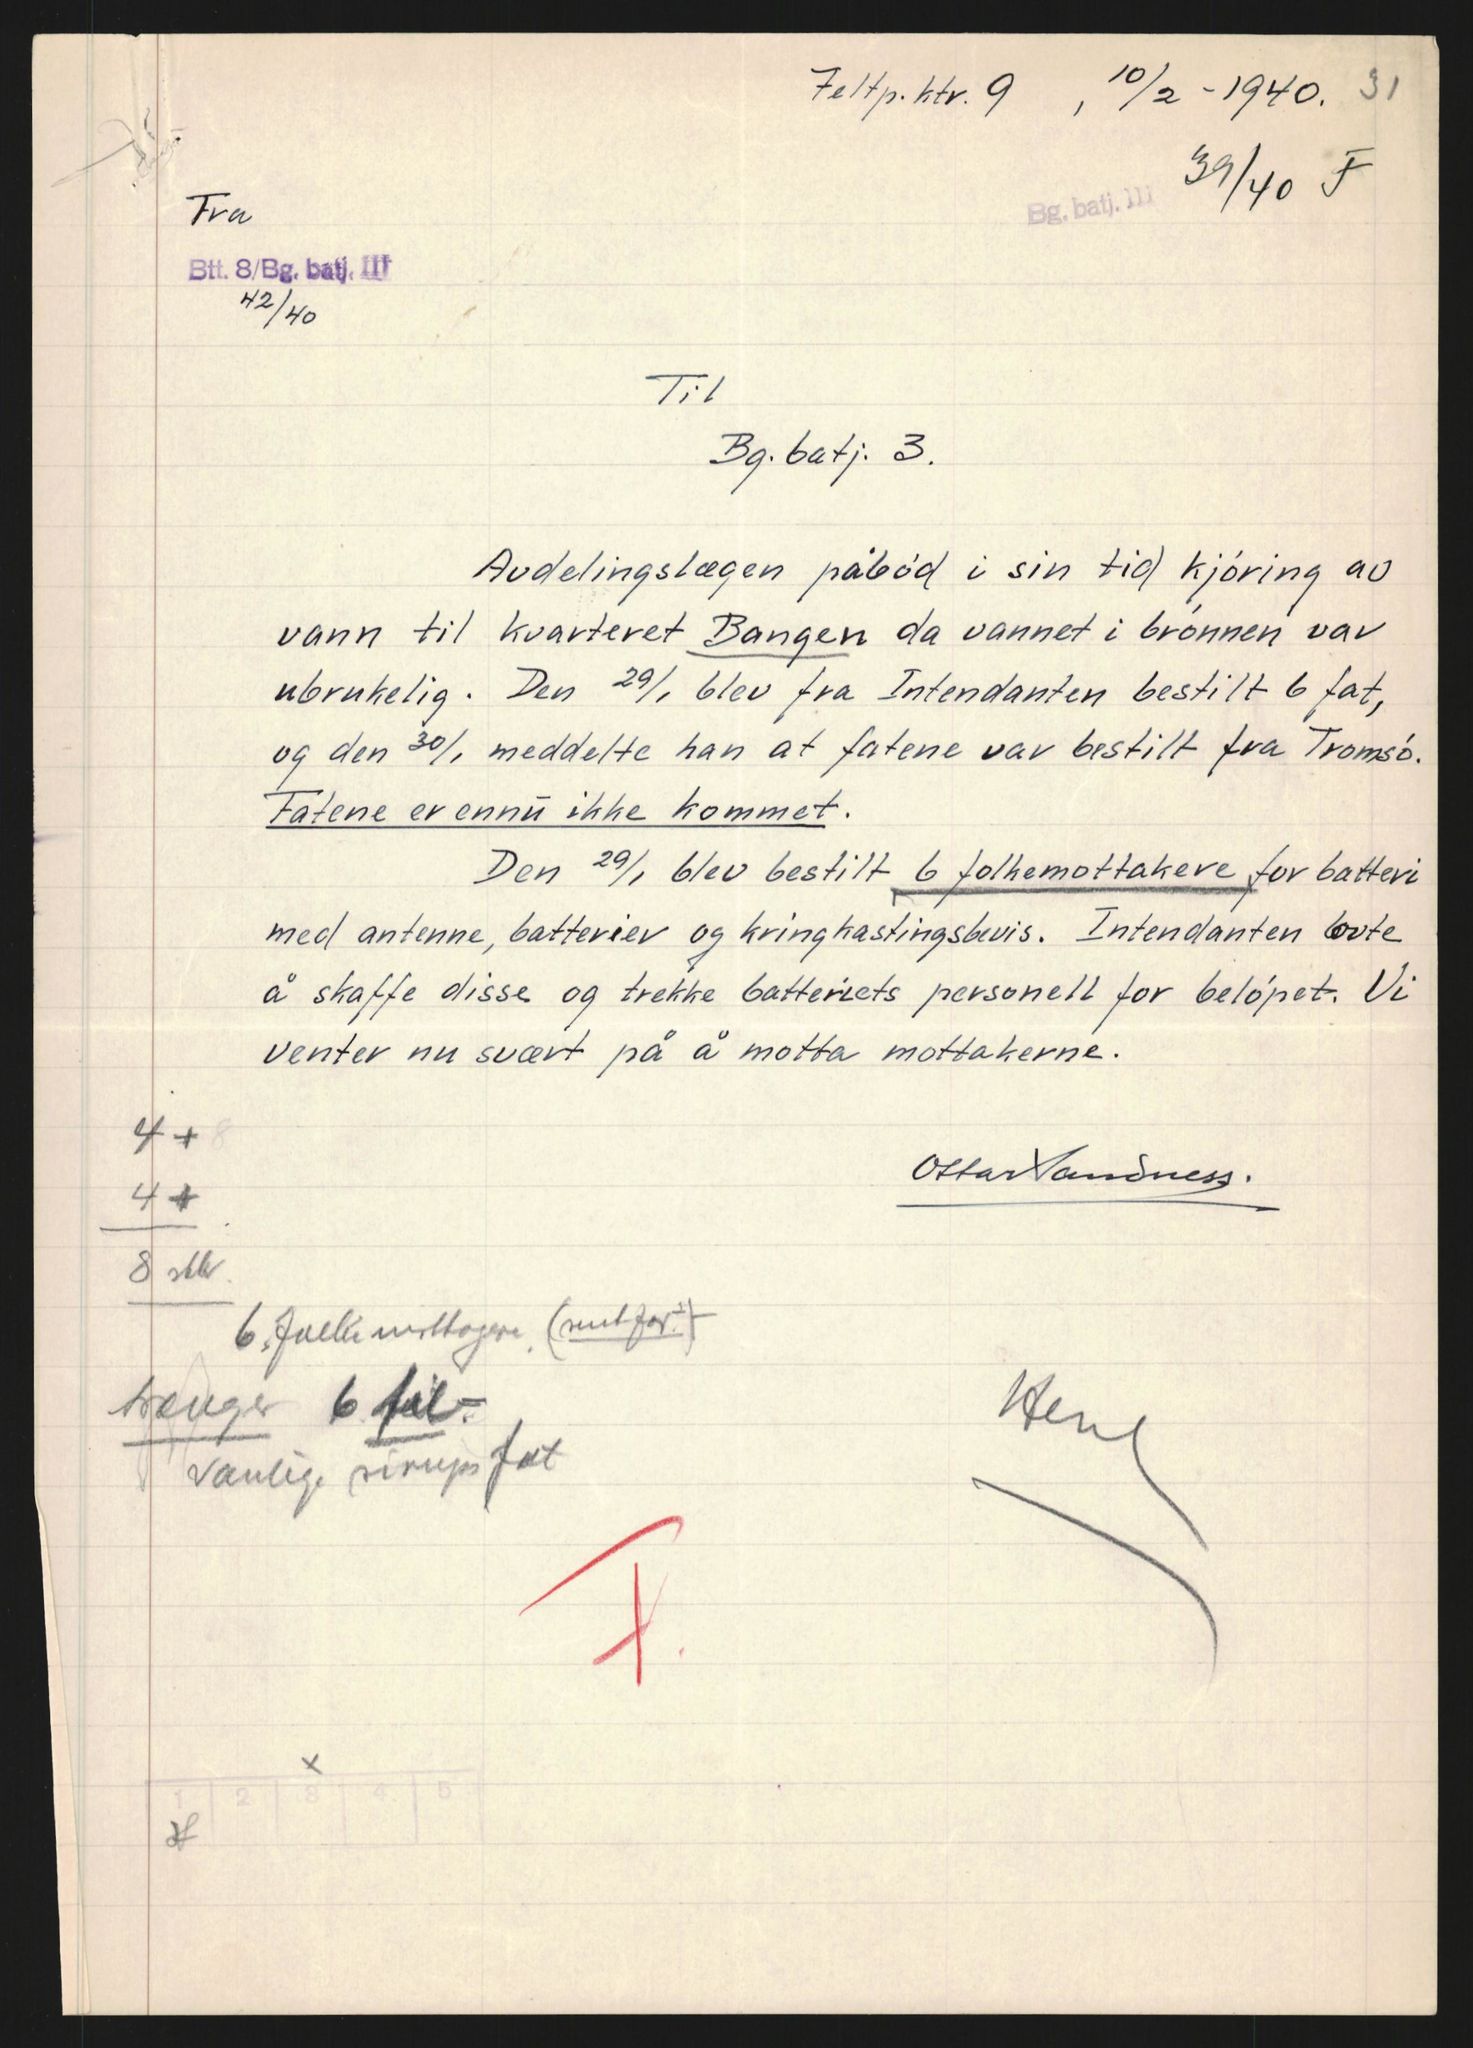 Feltp.ktr. 9 , 10/2 - 1940. 31
39/40 F
Bg. batj. III
Fra
Btt. 8/Bg. batj. III
42/40
Til
Bg. batj. 3.
Avdelingslægen påbód i sin tid kjóring av
vann til kvarteret Bangen da vannet i brónnen var
ubrukelig. Den 29/1 blev fra Intendanten bestilt 6 fat,
og den 30/1 meddelte han at fatene var bestilt fra Tromsó.
Fatene er ennu ikke kommet.
Den 29/1 blev bestilt 6 folkemottakere for batteri
med antenne, batterier og kringkastingsbevis. Intendanten lovte
å skaffe disse og trekke batteriets personell for belópet. Vi
venter nu svært på å motta mottakerne.
4 + 8
4 +
Ottar Sandness.
8
6
trænger 6 fat
Vanlige sirups fat
Henl
F.
x
1 2 3 4 5